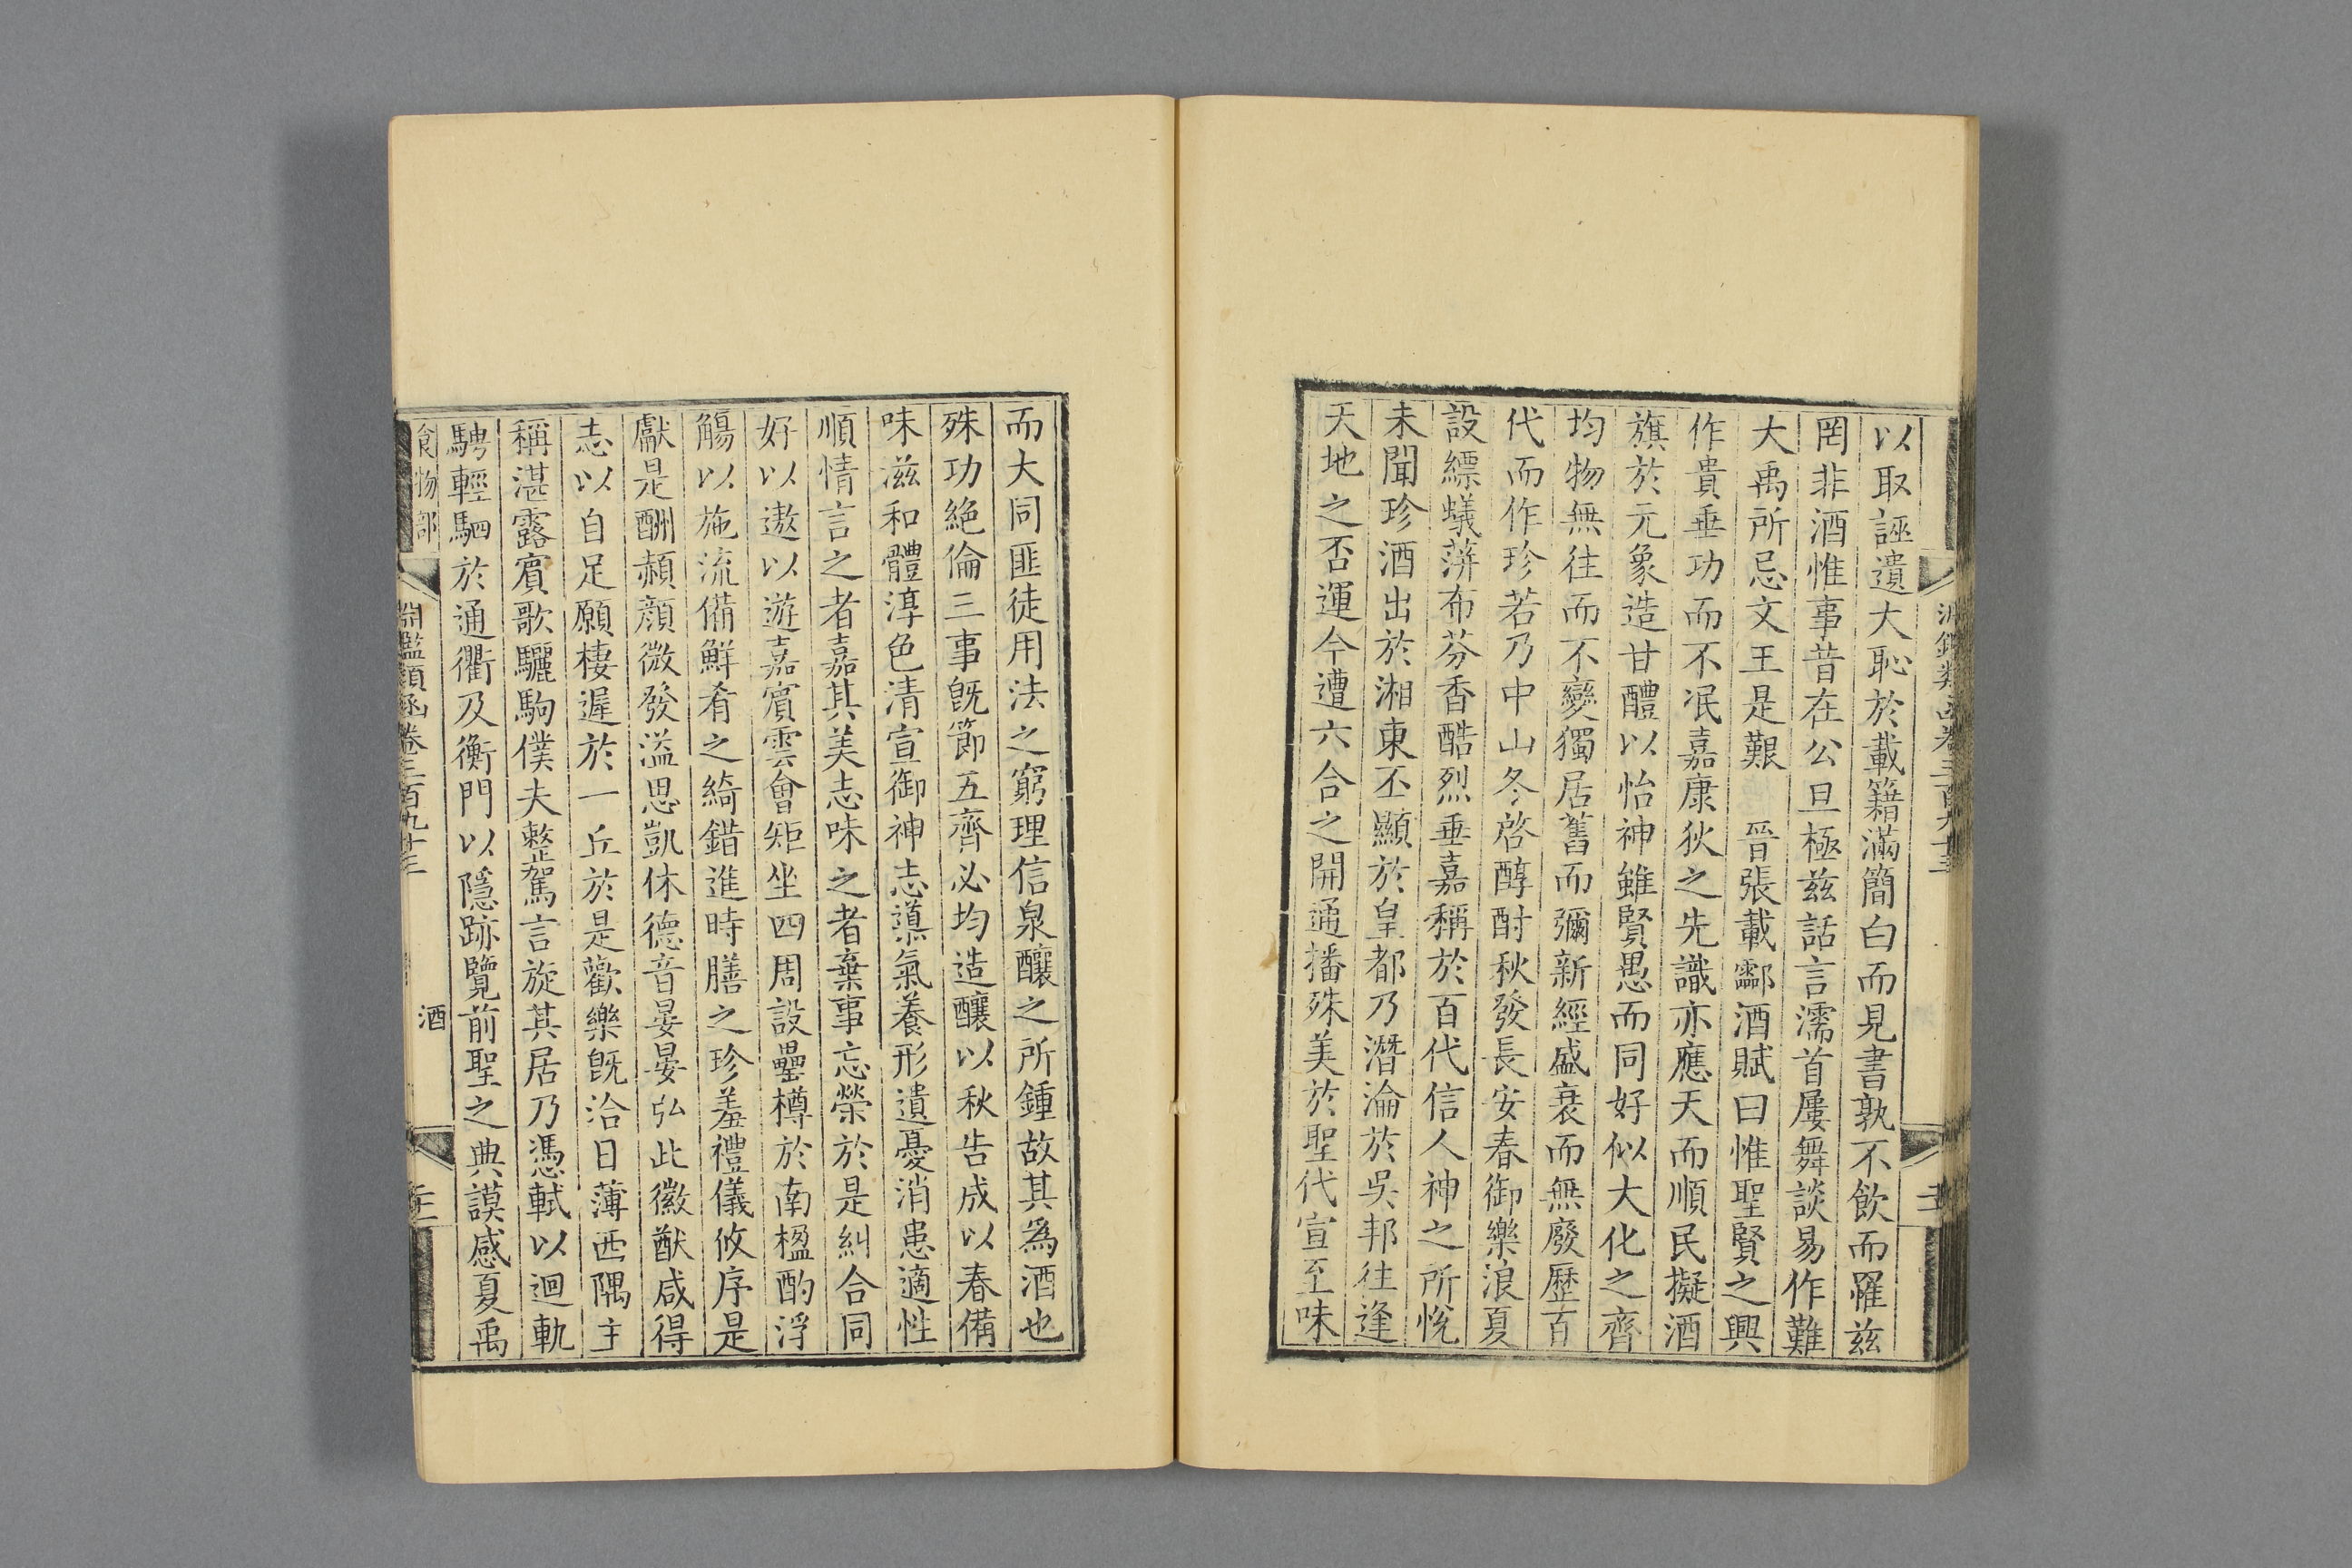 以取誣遺大恥於載籍滿簡白而見書孰不飲而羅茲
罔非酒惟事昔在公旦極茲話言濡首屢舞談易作難
大禹所忌文王是艱　晉張載酃酒賦曰惟聖賢之興
作貴垂功而不泯嘉康狄之先識亦應天而順民擬酒
旗於元象造甘醴以怡神雖賢愚而同好似大化之齊
均物無往而不變獨居舊而彌新經盛衰而無廢歷百
代而作珍若乃中山冬啓醇酎秋發長安春御樂浪夏
設縹蟻蓱布芬香酷烈垂嘉稱於百代信人神之所悅
未聞珍酒出於湘東丕顯於皇都乃潛淪於吳邦往逢
天地之否運今遭六合之開通播殊美於聖代宣至味
而大同匪徒用法之窮理信泉釀之所鍾故其為酒也
殊功絕倫三事既節五齊必均造釀以秋告成以春備
味滋和體淳色清宣御神志導氣養形遺憂消患適性
順情言之者嘉其美志味之者棄事忘榮於是糾合同
好以遨以遊嘉賓雲會矩坐四周設罍樽於南楹酌浮
觴以施流備鮮肴之綺錯進時膳之珍羞禮儀攸序是
獻是酬頳顏微發溢思凱休德音晏晏弘此徽猷咸得
志以自足願棲遲於一丘於是歡樂既洽日薄西隅主
稱湛露賓歌驪駒僕夫整駕言旋其居乃憑軾以迴軌
騁輕駟於通衢及衡門以隱跡覽前聖之典謨感夏禹
食物部
淵鑑類函卷三百九十三
酒